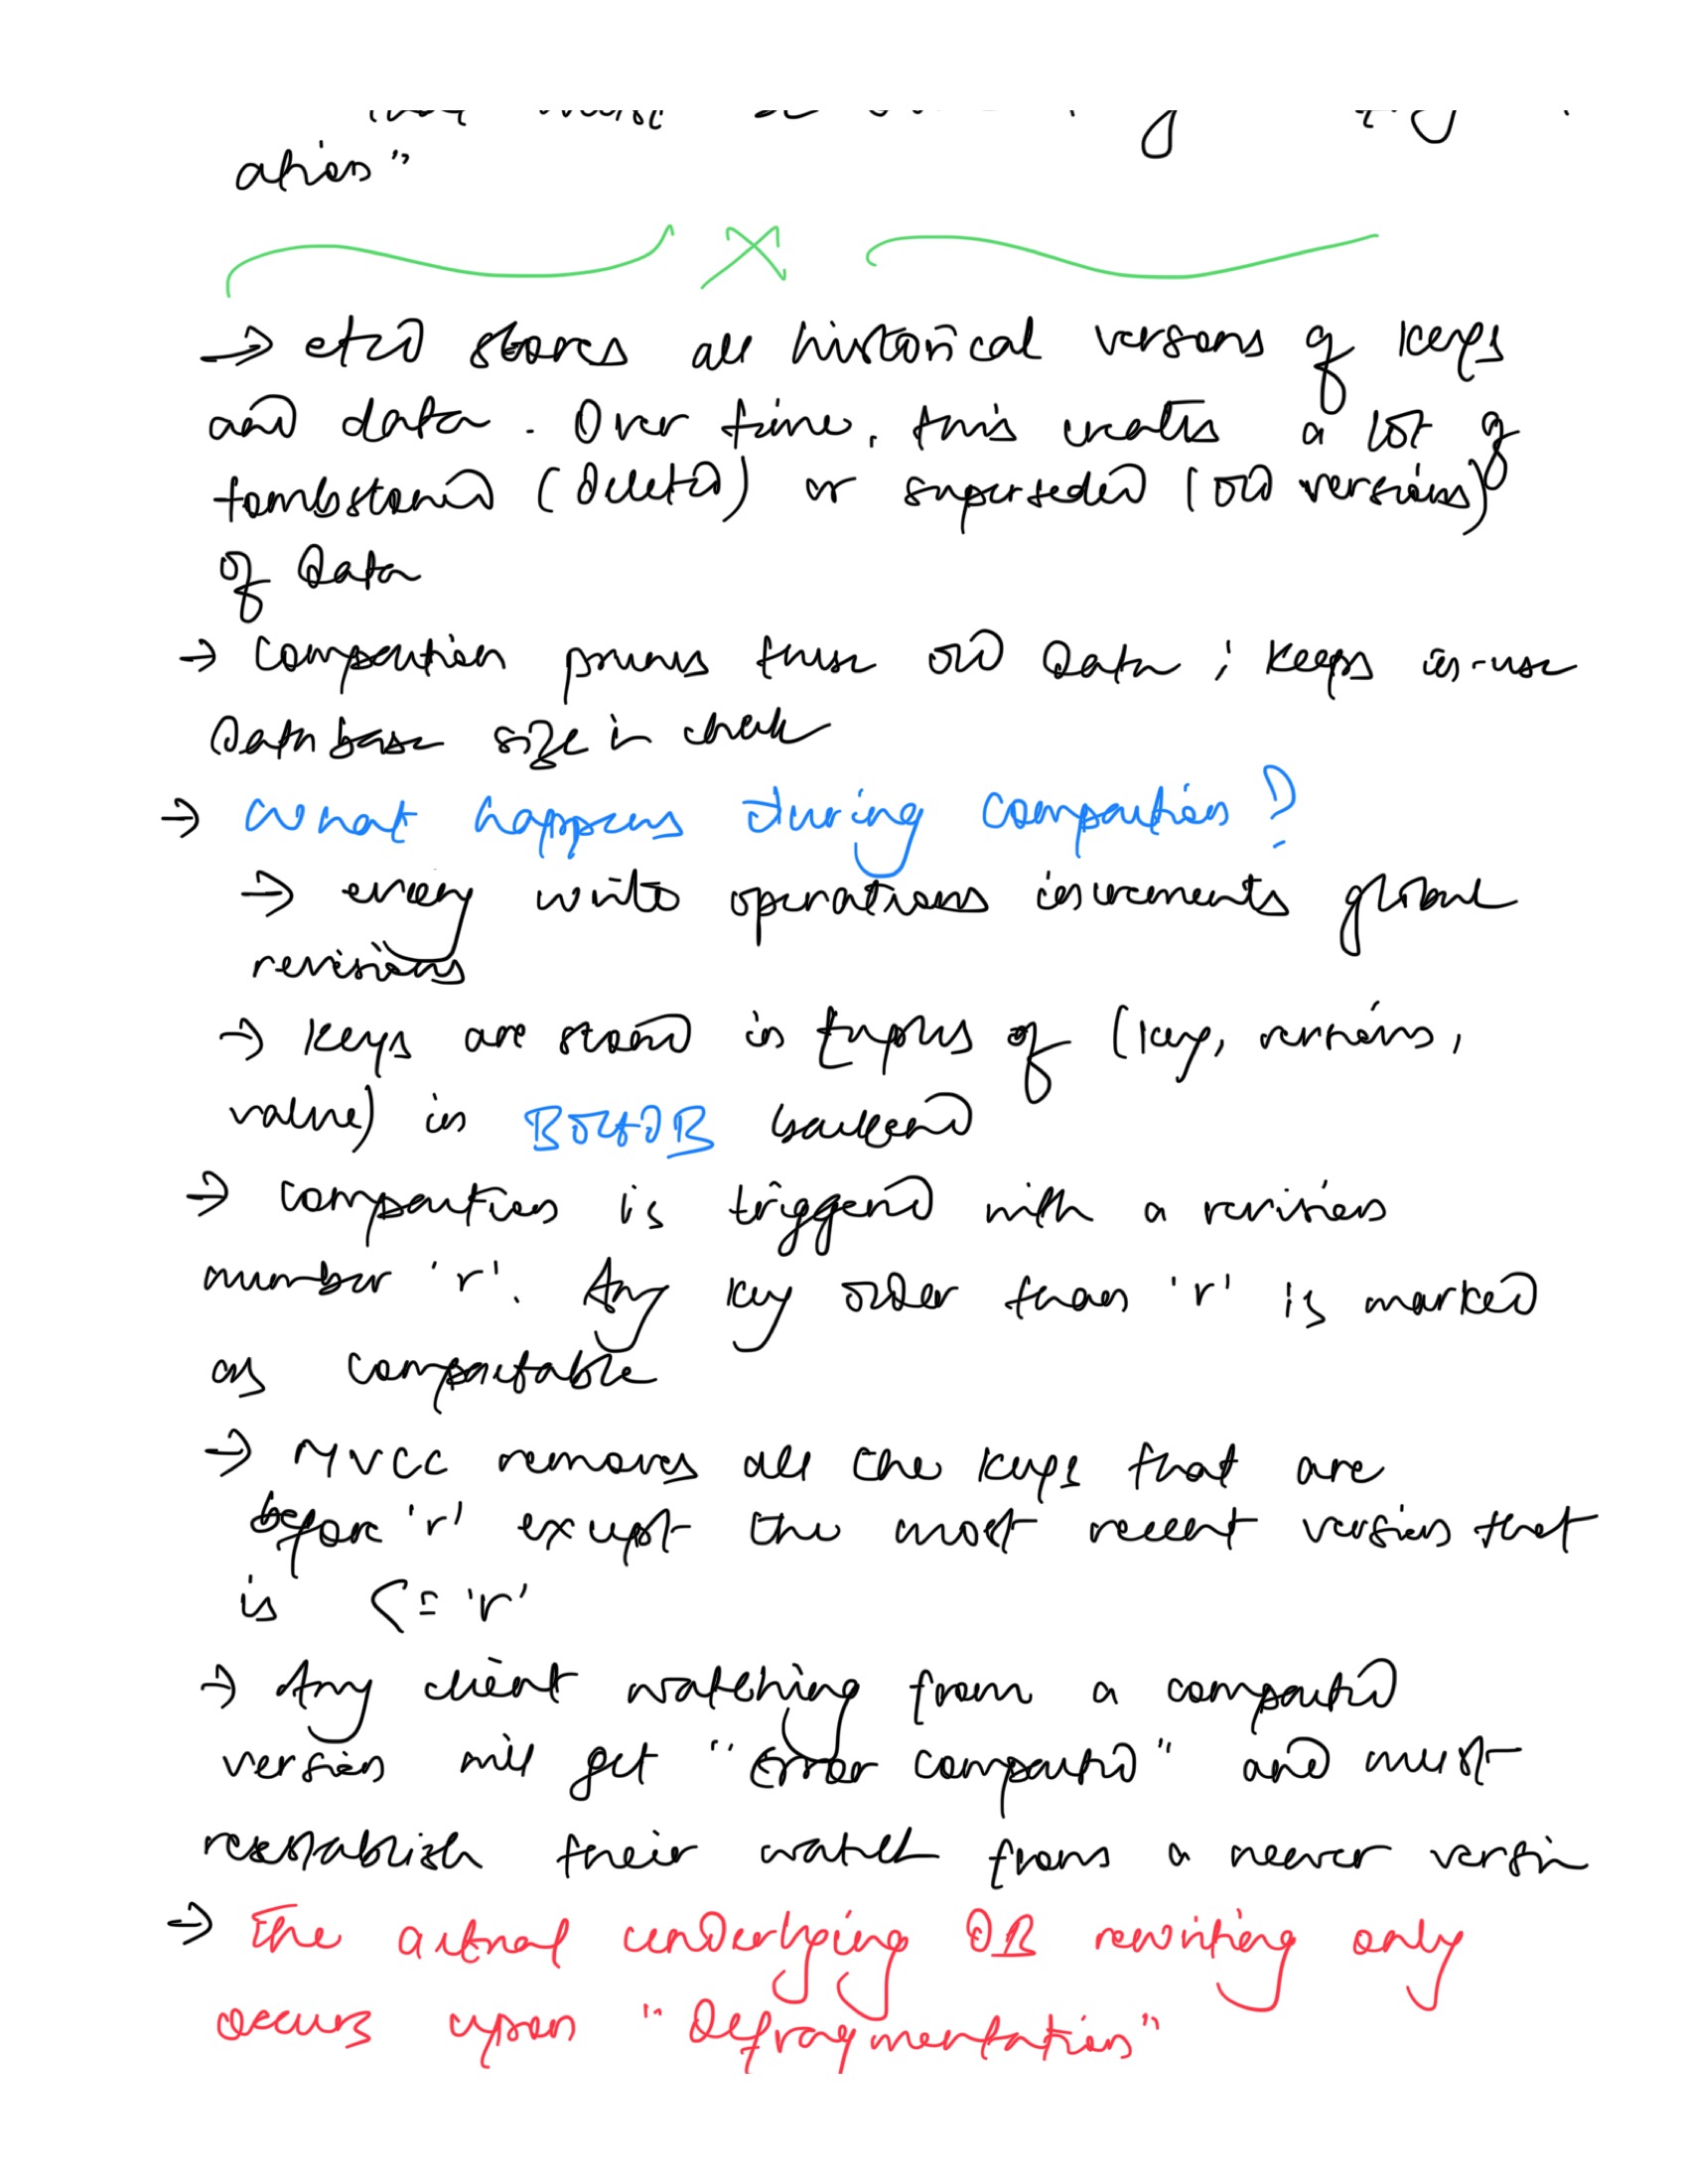 ation"
→ etcd stores all historical versions of keys
and data. Over time, this creates a lot of
tombstoned (deleted) or superseded (old versions)
of data
→ Compaction prunes these old data; keeps in-use
database size in check
→ What happens during compaction?
→ every write operations increments global
revisions
→ keys are stored in tuples of (key, revision,
value) in BoltDB backend
→ compaction is triggered with a revision
number 'r'. Any key older than 'r' is marked
as compactable
→ MVCC removes all the keys that are
before 'r' except the most recent version that
is <= 'r'
→ Any client watching from a compacted
version will get "Error compacted" and must
reestablish their watch from a newer version
→ The actual underlying DB rewriting only
occurs upon "Defragmentation"